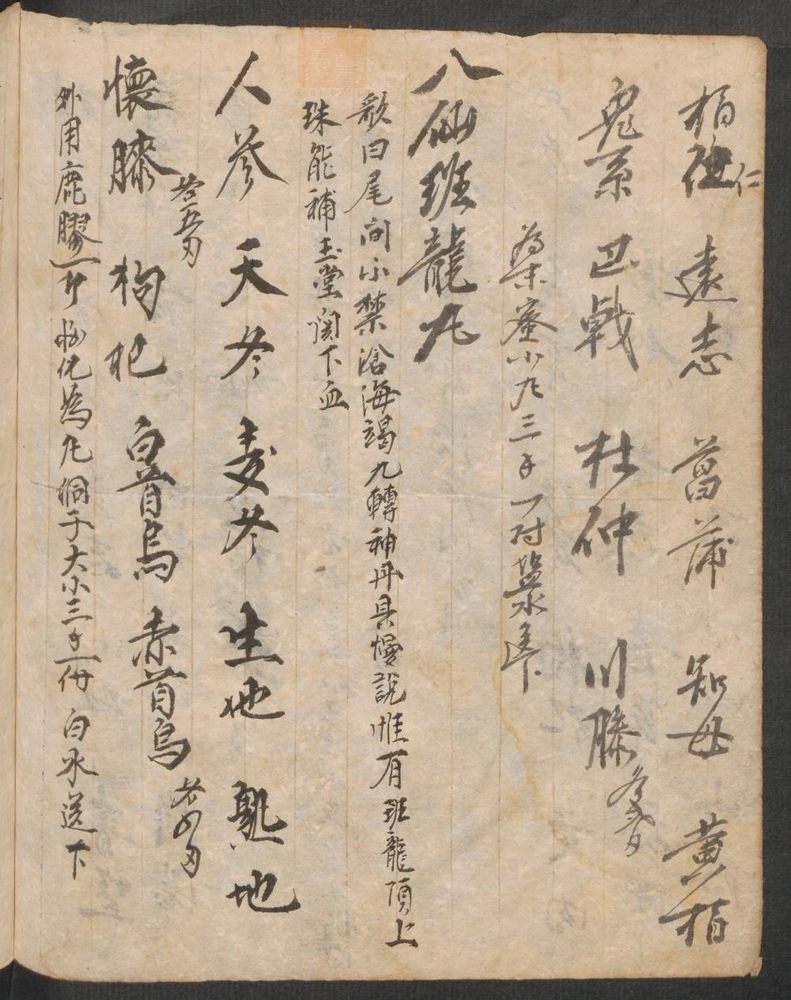 柏仁 遠志 菖蒲 知母 黄柏
兔系 巴戟 杜仲 川膝
蜜小丸三手一付盐水送下
八仙班龍丸
歌曰尾闾不禁滄海竭九轉神丹具慢説惟有班龍頂上
珠能補玉堂関下血
人參 天冬 麦冬 生地 熟地
懷膝 各五 枸杞 白首烏 赤首烏 各四
外用鹿膠一斤 化為丸桐子大小三手一付 白水送下